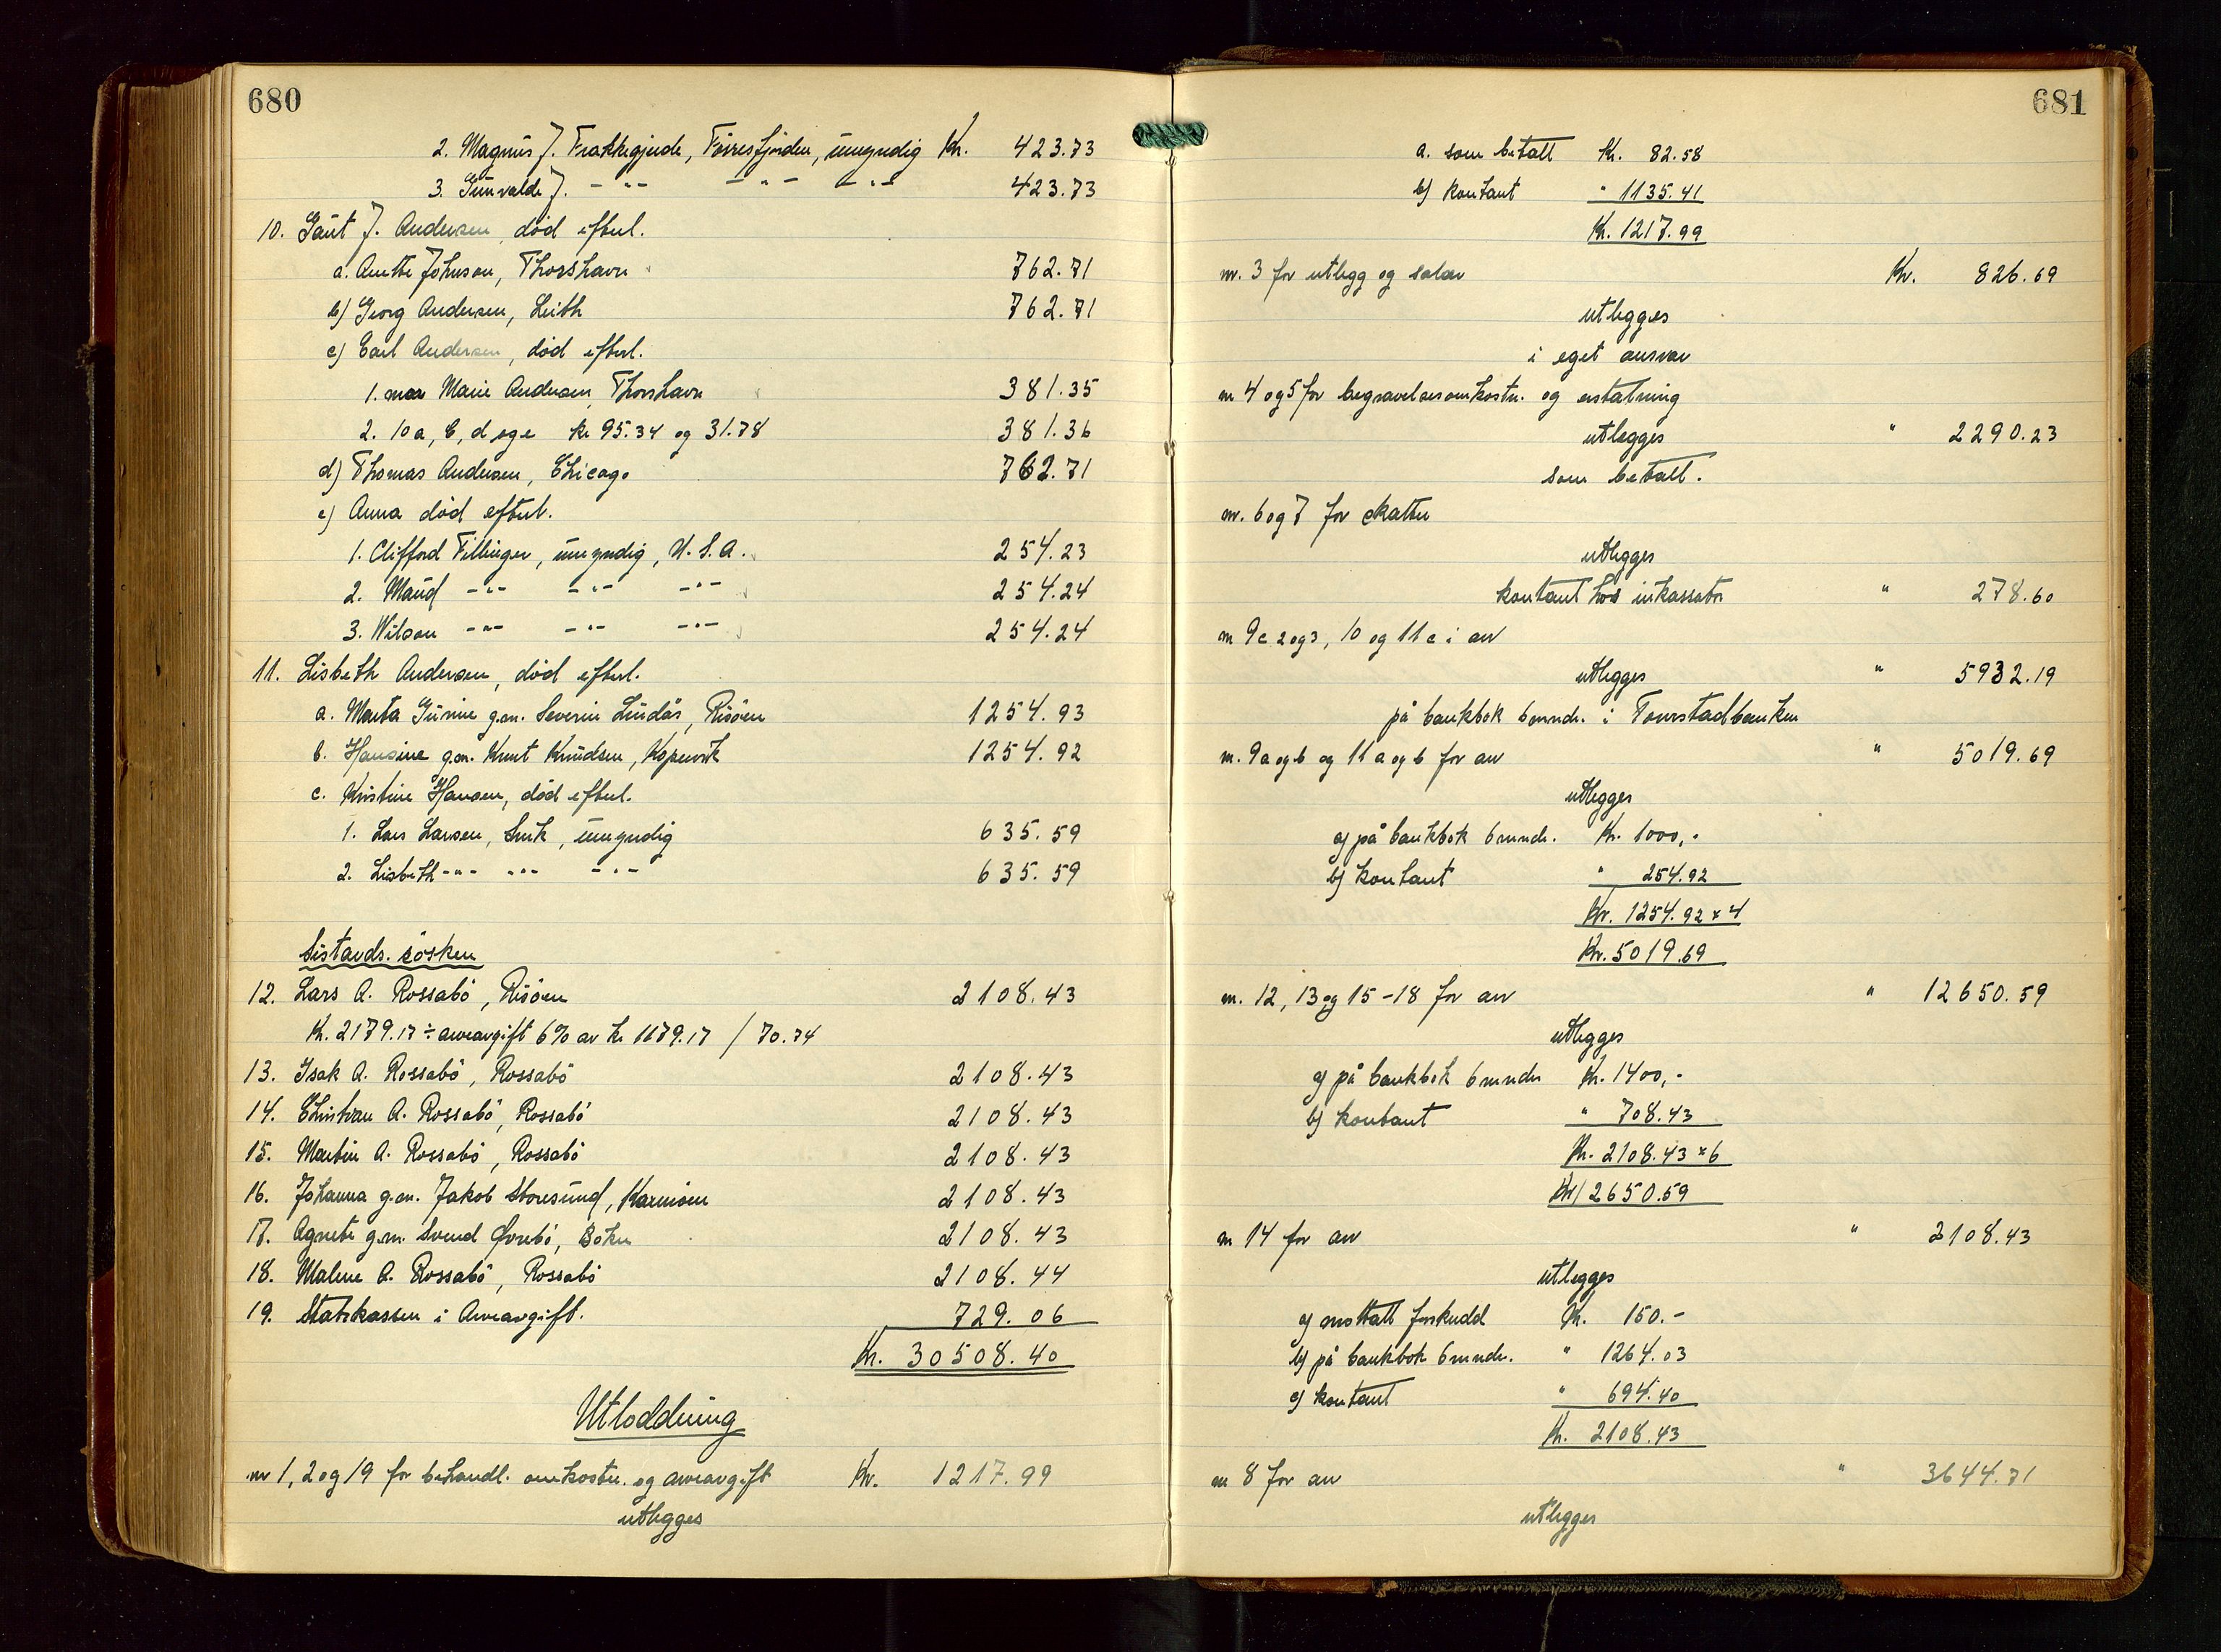 680
2. Magnus J. Frakkagjerde, Førresfjorden, umyndig Kr. 423.73
3. Gunvald J. - " - - " - - " - 423.73
10. Gaut J. Andersen, død efterl.
a. Anette Johnson, Thorshavn 762.71
b) Georg Andersen, Leith 762.71
c) Carl Andersen, død efterl.
1. mor Marie Andersen, Thorshavn 381.35
2. 10a, b, d og e kr 95.34 og 31.78 381.36
d) Thomas Andersen, Chicago 762.71
e) Anna død efterl.
1. Clifford Tillinger, umyndig, U.S.A. 254.23
2. Maud - " - - " - - " - 254.24
3. Wilson - " - - " - - " - 254.24
11. Lisbeth Andersen, død efterl.
a. Marta Gurine g.m. Severin Lindås, Risøen 1254.93
b. Hansine g.m. Knut Knudsen, Kopervik 1254.92
c. Kristine Hansen, død efterl.
1. Lars Larsen, umyndig 635.59
2. Lisbeth - " - - " - - " - 635.59
Avstands. søsken
12. Lars A. Rossabø, Risøen 2108.43
Kr. 2179.17 ÷ arveavgift 6% av kr 1179.17 / 70.74
13. Isak A. Rossabø, Rossabø 2108.43
14. Christian A. Rossabø, Rossabø 2108.43
15. Martin A. Rossabø, Rossabø 2108.43
16. Johanna g.m. Jakob Storesund, Karmøen 2108.43
17. Agnete g.m. Svend Øvrebø, Bokn 2108.43
18. Malene A. Rossabø, Rossabø 2108.44
19. Statskassen i Arveavgift. 729.06
Kr. 30508.40
Utlodding
nr 1, 2 og 19 for behandl. omkostn. og arveavgift Kr. 1217.99
utlegges
681
a. som betalt Kr. 82.58
b) kontant " 1135.41
Kr. 1217.99
nr. 3 for utlegg og salær Kr. 826.69
utlegges
i eget ansvar
nr 4 og 5 for begravelsesomkostn. og erstatning
utlegges " 2290.23
som betalt.
nr. 6 og 7 for skatter
utlegges
kontant hos inkassator " 278.60
nr 9c 2 og 3, 10 og 11 c i arv
utlegges " 5932.19
på bankbok 6 mndr. i
nr. 9a og b og 11 a og b for arv " 5019.69
utlegges
a) på bankbok 6 mndr. Kr. 1000,-
b) kontant " 254.92
Kr. 1254.92 x 4
Kr. 5019.69
nr. 12, 13 og 15-18 for arv " 12650.59
utlegges
a) på bankbok 6 mndr Kr. 1400,-
b) kontant " 708.43
Kr. 2108.43 x 6
Kr 12650.59
nr 14 for arv " 2108.43
utlegges
a) mottatt forskudd Kr. 150.-
b) på bankbok 6 mndr. " 1264.03
c) kontant " 694.40
Kr. 2108.43
nr 8 for arv " 3644.71
utlegges